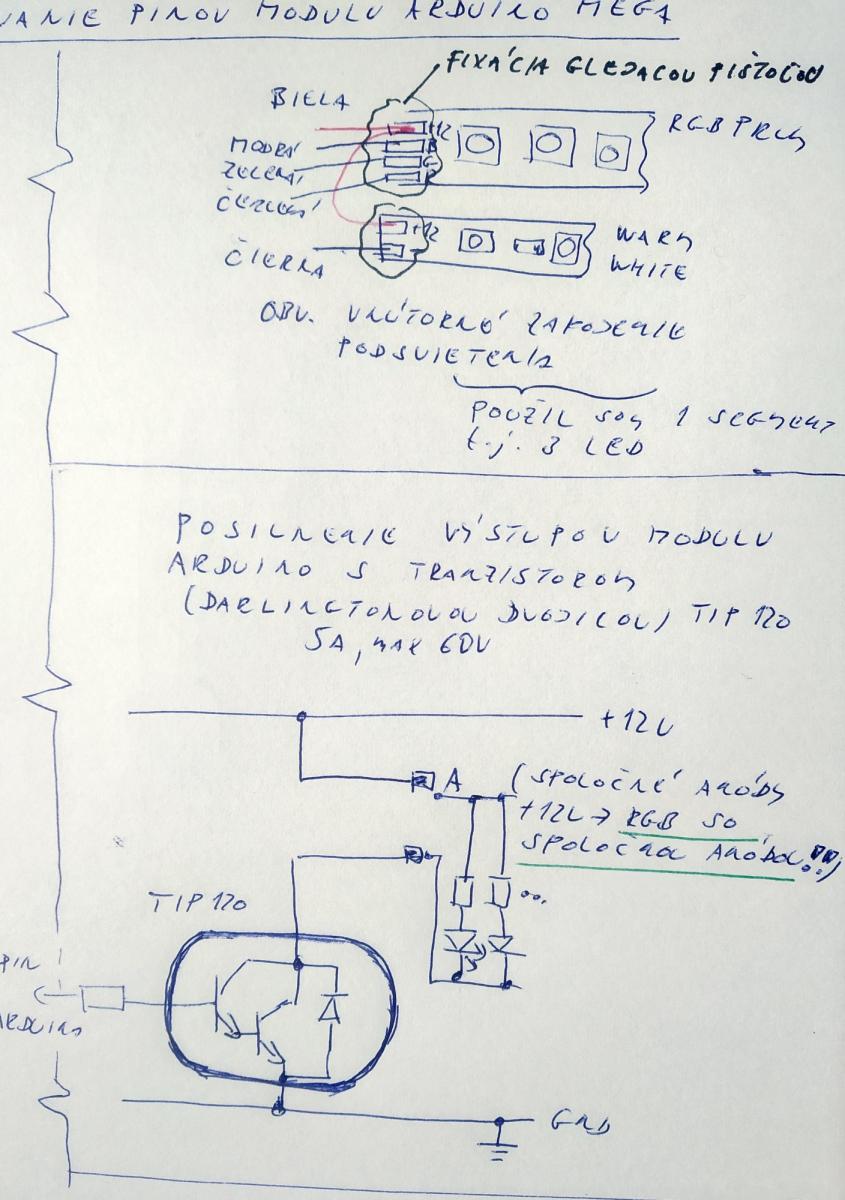 VANIE PINOV MODULU ARDUINO MEGA
FIXÁCIA
BIELA
+12
RGB
MODRÁ
B
ZELENÁ
G
ČERVENÁ
R
+12
-
WARM
WHITE
ČIERNA
OBV. VNÚTORNÉ ZAPOJENIE
PODSVIETENIA
POUŽIL SOM 1 SEGMENT
t.j. 3 LED
POSILNENIE VÝSTUPOV MODULU
ARDUINO S TRANZISTOROM
(DARLINGTONOVOU DVOJICOU) TIP 120
5A, max 60V
+12V
A
(SPOLOČNÉ ANÓDY
+12V → RGB SO
SPOLOČNOU ANÓDOU!!!)
TIP 120
PIN
ARDUINO
GND